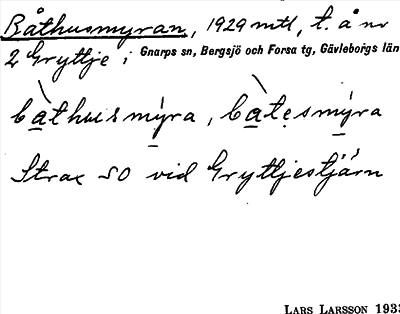 Båthusmyran, 1929 mtl, t. å nr
2 Gryttje i Gnarps sn, Bergsjö och Forsa tg, Gävleborgs län
bàthusmýra, bàtesmýra
Strax SO vid Gryttjestjärn
LARS LARSSON 1933